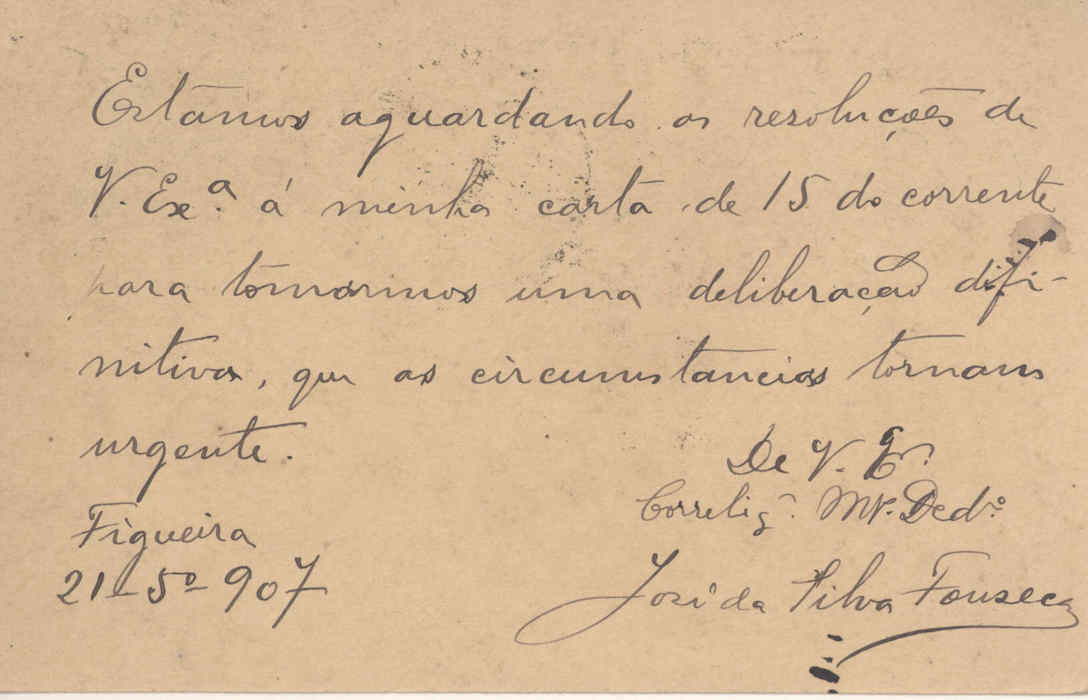 Estâmos aguardando as resoluções de
V. Ex.ª á minha carta de 15 do corrente
para tomarmos uma deliberação difi-
nitiva, que as circumstancias tornam
urgente.
De V. E.
Correlig.º Mt. Ded.º
Figueira
21-5º-907
José da Silva Fonseca